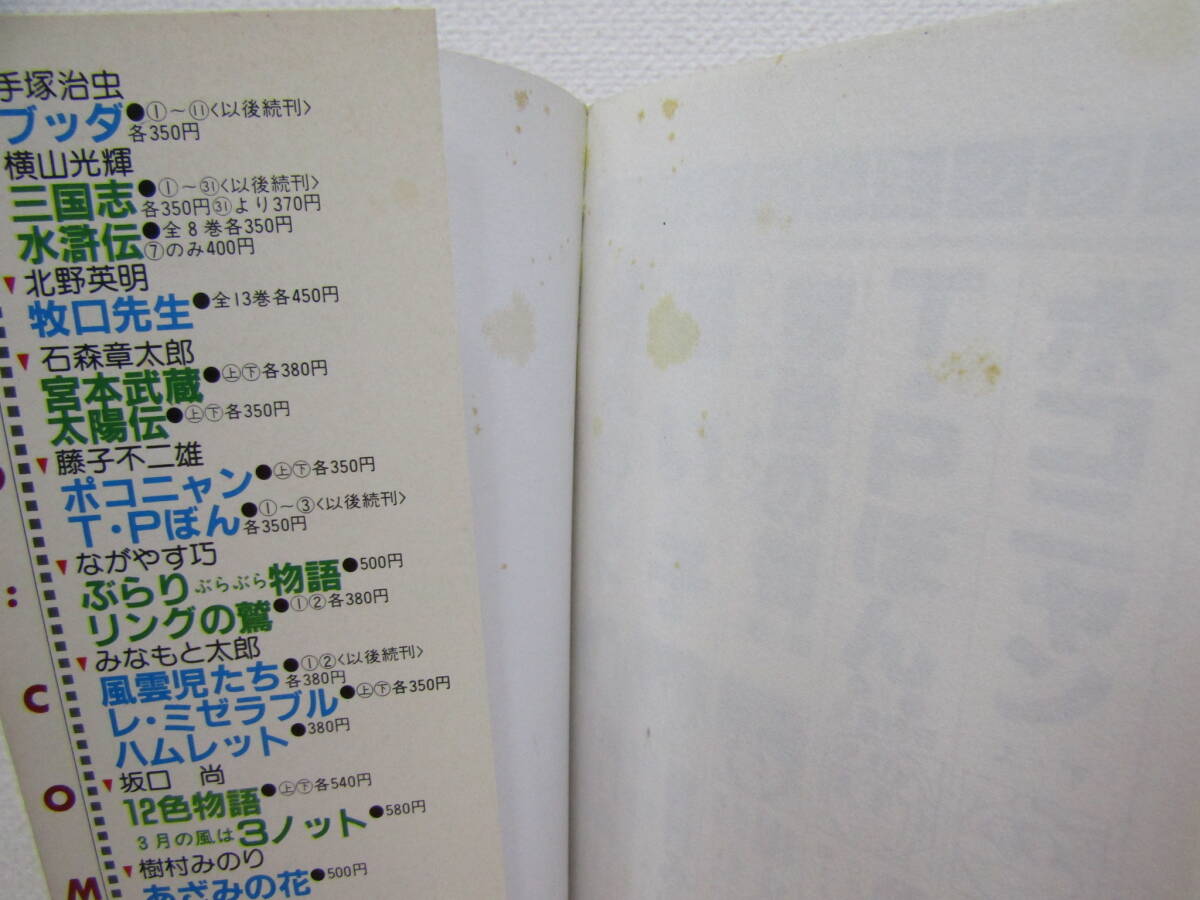 手塚治虫
ブッダ●①〜⑪<以後続刊>
各350円
横山光輝
三国志●①〜㉛<以後続刊>
各350円㉛より370円
水滸伝●全8巻各350円
⑦のみ400円
▼北野英明
牧口先生●全13巻各450円
▼石森章太郎
宮本武蔵●㊤㊦各380円
太陽伝●㊤㊦各350円
▼藤子不二雄
ポコニャン●㊤㊦各350円
T・Pぼん●①〜③<以後続刊>
各350円
▼ながやす巧
ぶらりぶらぶら物語●500円
リングの鷲●①②各380円
▼みなもと太郎
風雲児たち●①②<以後続刊>
各380円
レ・ミゼラブル●㊤㊦各350円
ハムレット●380円
▼坂口 尚
12色物語●㊤㊦各540円
3月の風は3ノット●580円
▼樹村みのり
あざみの花●500円
:
C
O
M